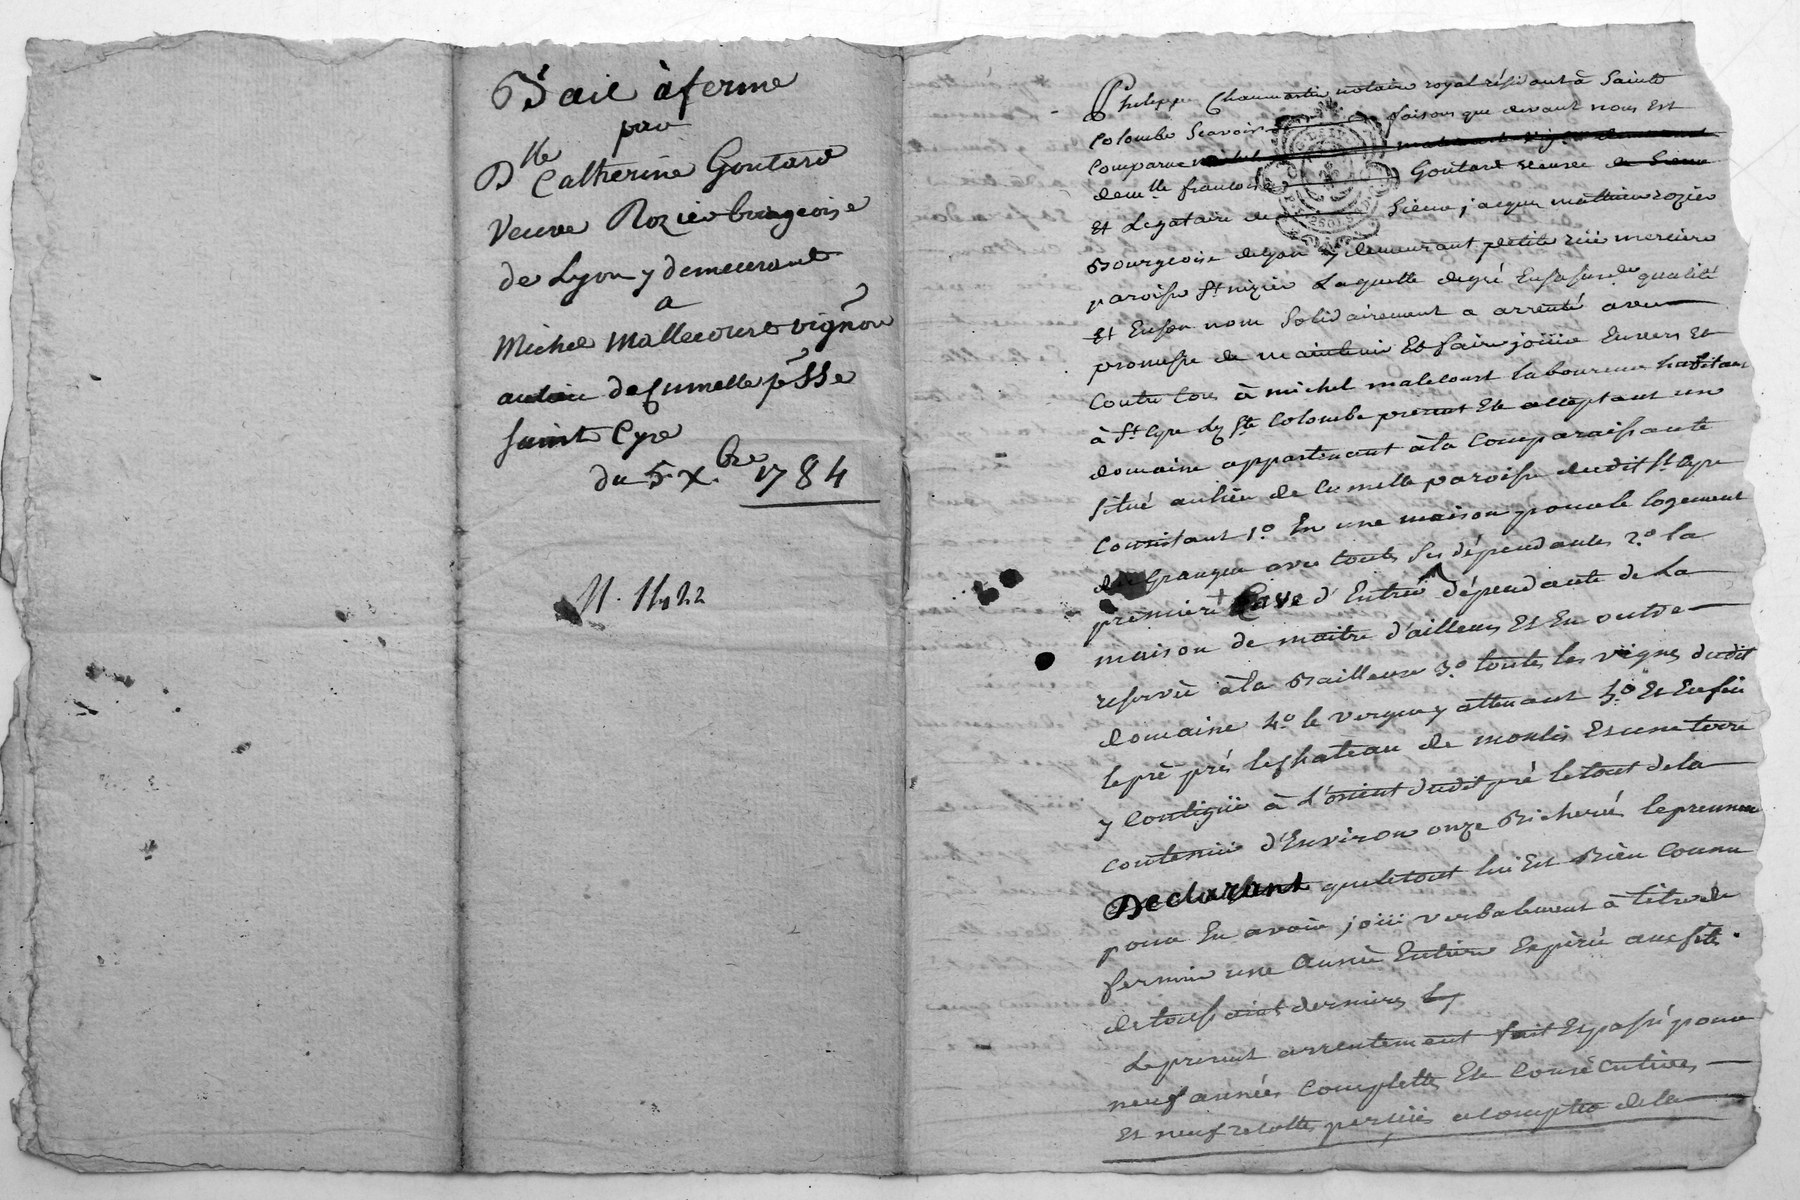 Bail à ferme
par
Dlle Catherine Goutard
veuve Rozier bourgeoise
de Lyon y demeurant
a
Michel Mallecourt vigñon
au lieu de Cumelle psse
saint Cyre
du 5 Xbre 1784
N. 1422
Philippe Chaumartin notaire royal résidant à Sainte
Colombe Scavoir faisons que devant nous Est
Comparue
demlle francoise Goutard veuve
Et Legataire de Sieur jacque mathieu rozier
Bourgeoise de Lyon y demeurant petite rüe merciere
paroisse St nizier Laquelle de gré En sa susde qualité
Et En son nom Solidairement a arrenté avec
promesse de maintenir Et faire joüir Envers Et
Contre tous à michel malecourt laboureur habitant
à St Cyre Lz Ste Colombe present Et acceptant un
domaine appartenant à la Comparaissante
Situé au lieu de Cumelle paroisse dudit St Cyre
Consistant 1.o En une maison pour le logement
du Granger avec toutes Ses dépendantes 2.o la
premiere + Cave d'Entrée dépendante de La
maison de maitre d'ailleurs Et En outre
reservée à la Bailleuse 3.o toutes les vignes dudit
domaine 4.o le verger y attenant 5.o Et Enfin
le pré prés le chateau de montlis Et une terre
y Contigüe à L'orient dudit pré le tout de la
contenüe d'Environ onze Bicherées le preneur
Declarant que le tout lui Est Bien Connu
pour En avoir joüi verbalement à titre de
fermie une Année Entiere Expirée aux fetes
de toussaint dernieres
Le present arrentement fait Et passé pour
neuf années Complettes Et Consécutives
Et neuf recoltes perçües a Compter de la